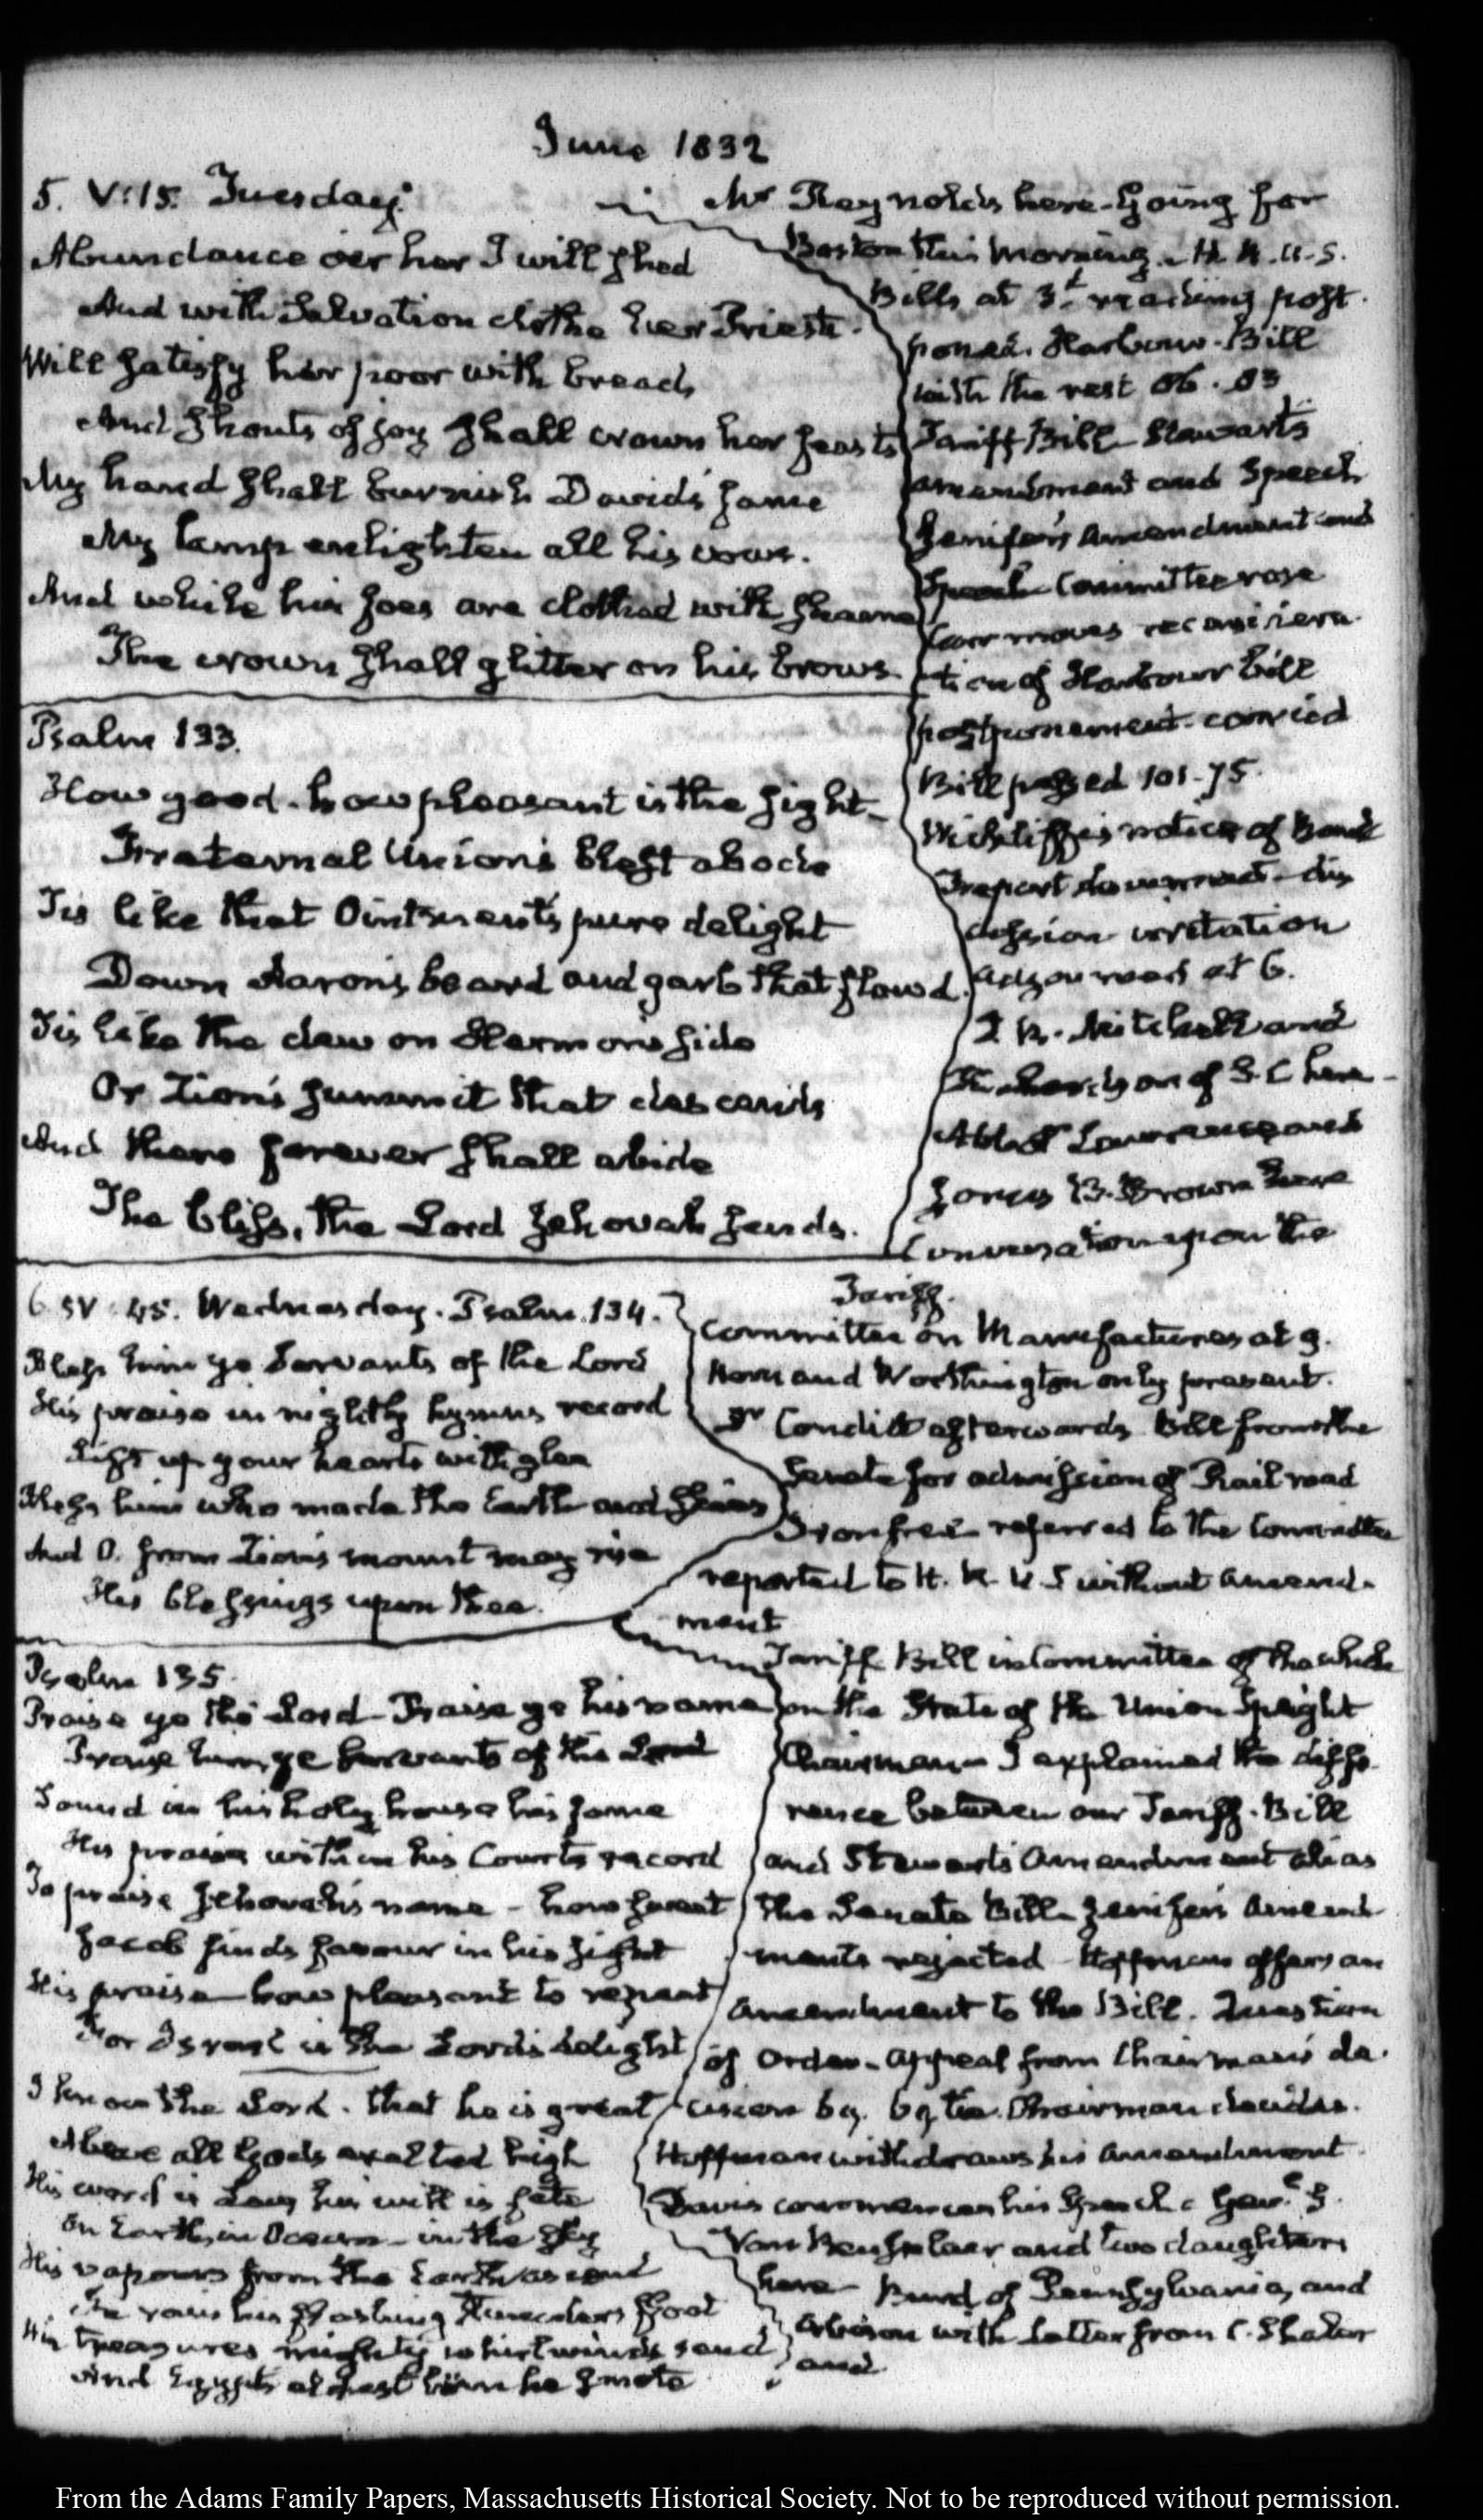 June 1832
5. V:15. Tuesday.
Abundance o'er her I will shed
And with Salvation clothe her Priests.
Will satisfy her poor with bread,
And shouts of joy shall crown her feasts
My hand shall burnish David's fame
My lamp enlighten all his vows.
And while his foes are clothed with shame
The crown shall glitter on his brows
Psalm 133.
How good. how pleasant is the sight_
Fraternal Union's blest abode
Tis like that Ointment's pure delight
Down Aaron's beard and garb that flow'd.
Tis like the dew on Hermon's side
Or Zion's summit that descends
And there forever shall abide
The bliss, the Lord Jehovah sends.
Mr Reynolds here. Going for
Boston this morning. H. R. U.S.
Bills at 3d. reading post
poned. Harbour-Bill
with the rest 86. 83
Tariff Bill Stewart's
amendment and Speech
Jenifer's Amendment and
Speech Committee rose
moves reconsidera
tion of Harbour bill
postponement. carried
Bill passed 101-75.
Wickliffe's notice of Bank
report dis
cussion irritation
adjourned at 6.
T. R. Mitchell and
of S.C here_
Abbot Lawrence and
James B. Brown here
Conversation upon the
Tariff.
6. IV:45. Wednesday. Psalm. 134.
Bless him ye Servants of the Lord
His praise in nightly hymns record
Lift up your hearts with glee
Bless him who made the Earth and skies
And O. from Zion's mount may rise
His blessings upon thee.
Committee on Manufactures at 9.
Horn and Worthington only present.
Dr Condict afterwards Bill from the
Senate for admission of Rail road
Iron free referred to the Committee
reported to H. R. U.S without amend-
ment
Psalm 135.
Praise ye the Lord_ Praise ye his name
Praise him, ye Servants of the Lord
Sound in his holy house his fame
His praise within his Courts record
To praise Jehovah's name – how sweet
Jacob finds favour in his sight
His praise – how pleasant to repeat
For Israel is the Lord's delight
I know the Lord. that he is great
Above all Gods exalted high
His word is Law, his will is fate
On Earth, in Ocean – in the sky
His vapours from the Earth ascend
In rain his flashing thunders float
His treasures mighty whirlwinds send
And Egypt's eldest born he smote
Tariff Bill in Committee of the whole
on the State of the Union Speight
Chairman I explained the diffe
rence between our Tariff-Bill
and Stewart's Amendment alias
the Senate Bill_ Jenifer's Amend
ments rejected Hoffman offers an
amendment to the Bill. Question
of Order – Appeal from Chairman's de.
cision 69. 69 tie. Chairman decides.
Hoffman withdraws his amendment
Davis commences his Speech. Genl. S.
Van Rensselaer and two daughters
here Burd of Pennsylvania, and
with letter from C. Shaler
and
From the Adams Family Papers, Massachusetts Historical Society. Not to be reproduced without permission.